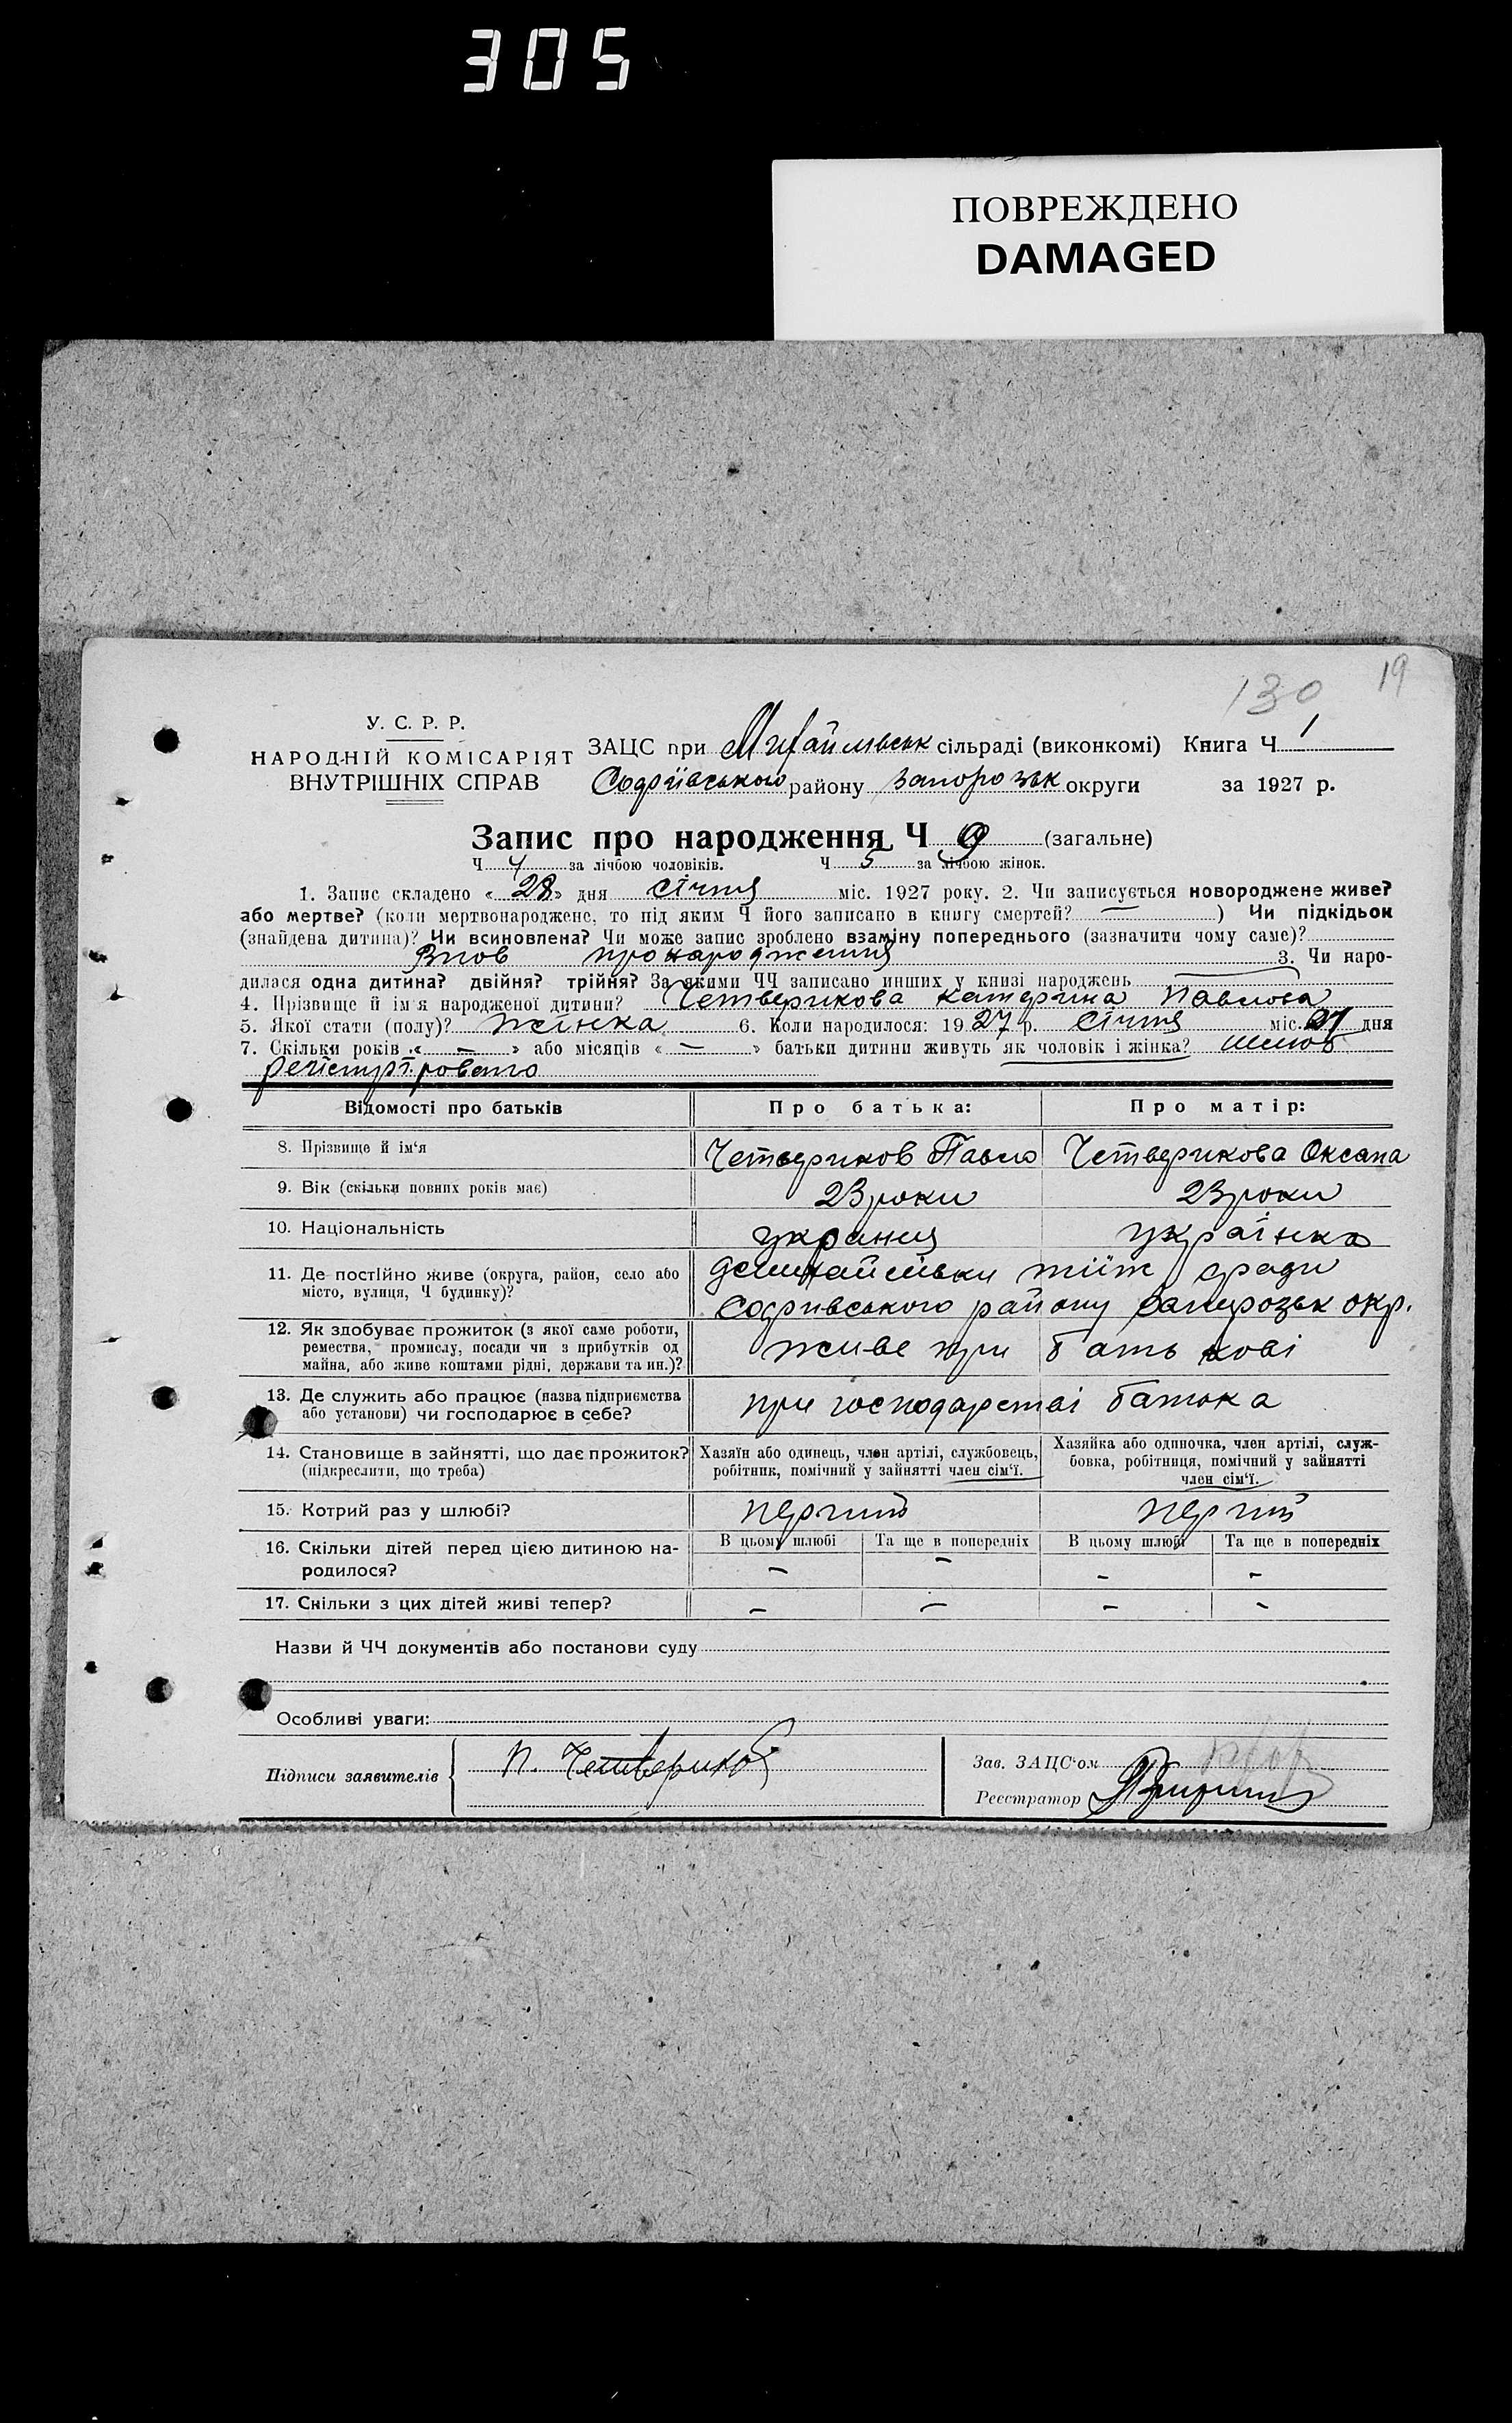 305
ПОВРЕЖДЕНО
DAMAGED
130 19
У. С. Р. Р.
НАРОДНІЙ КОМІСАРІЯТ
ВНУТРІШНІХ СПРАВ
ЗАЦС при Михайлівськ сільраді (виконкомі) Книга Ч 1
району Запорозьк округи за 1927 р.
Запис про народження Ч 9 (загальне)
Ч 4 за лічбою чоловіків. Ч 5 за лічбою жінок.
1. Запис складено «28» дня січня міс. 1927 року. 2. Чи записується новороджене живе?
або мертве? (коли мертвонароджене, то під яким Ч його записано в книгу смертей? — ) Чи підкідьок
(знайдена дитина)? Чи всиновлена? Чи може запис зроблено взаміну попереднього (зазначити чому саме)?
Внов про народження 3. Чи наро-
дилася одна дитина? двійня? трійня? За якими ЧЧ записано инших у книзі народжень
4. Прізвище й ім'я народженої дитини? Четверикова Катерина Павлова
5. Якої стати (полу)? жінка 6. Коли народилося: 1927 р. січня міс. 27 дня
7. Скільки років « — » або місяців « — » батьки дитини живуть як чоловік і жінка? шлюб
Відомості про батьків Про батька: Про матір:
8. Прізвище й ім'я Четвериков Павло Четверикова Оксана
9. Вік (скільки повних років має) 23 роки 23 роки
10. Національність українка
11. Де постійно живе (округа, район, село або
місто, вулиця, Ч будинку)? району окр.
12. Як здобуває прожиток (з якої саме роботи,
ремества, промислу, посади чи з прибутків од
майна, або живе коштами рідні, держави та ин.)? живе при батькові
13. Де служить або працює (назва підприємства
або установи) чи господарює в себе? при господарстві батька
14. Становище в зайнятті, що дає прожиток?
(підкреслити, що треба)
Хазяїн або одинець, член артілі, службовець,
робітник, помічний у зайнятті член сім'ї.
Хазяйка або одиночка, член артілі, служ-
бовка, робітниця, помічний у зайнятті
член сім'ї.
15. Котрий раз у шлюбі?
16. Скільки дітей перед цією дитиною на-
родилося?
В цьому шлюбі Та ще в попередніх В цьому шлюбі Та ще в попередніх
— — — —
17. Скільки з цих дітей живі тепер? — — — —
Назви й ЧЧ документів або постанови суду
Особливі уваги:
Підписи заявителів П. Четвериков
Зав. ЗАЦС'ом
Реєстратор